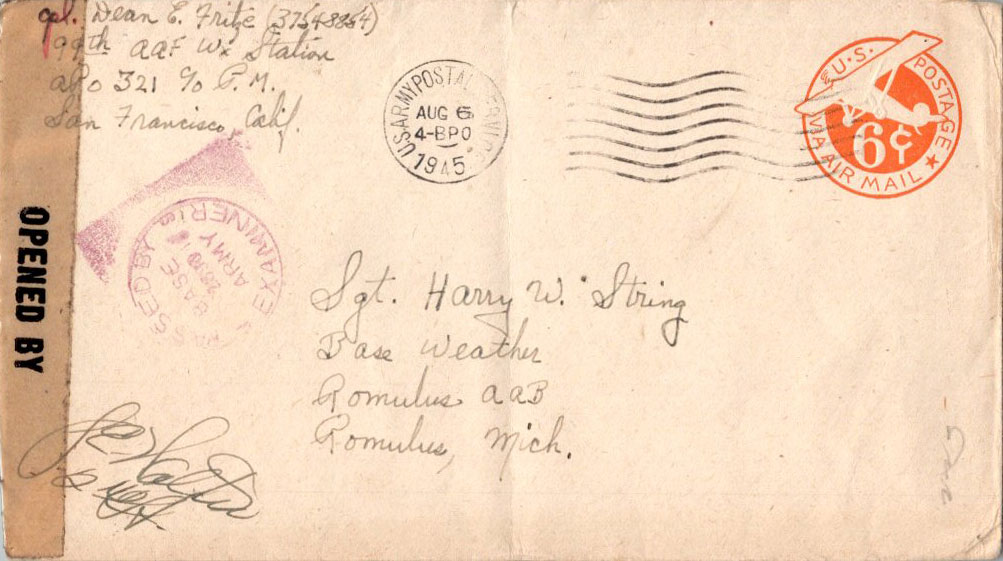 Cpl. Dean E. Fritze (37548864)
99th AAF Wx Station
APO 321 c/o P.M.
San Francisco, Calif.
U.S. ARMY POSTAL SERVICE
AUG 6
4-BPO
1945
U.S. POSTAGE
6¢
VIA AIR MAIL
OPENED BY
PASSED BY
BASE
ARMY
EXAMINER
Sgt. Harry W. String
Base Weather
Romulus AAB
Romulus, Mich.